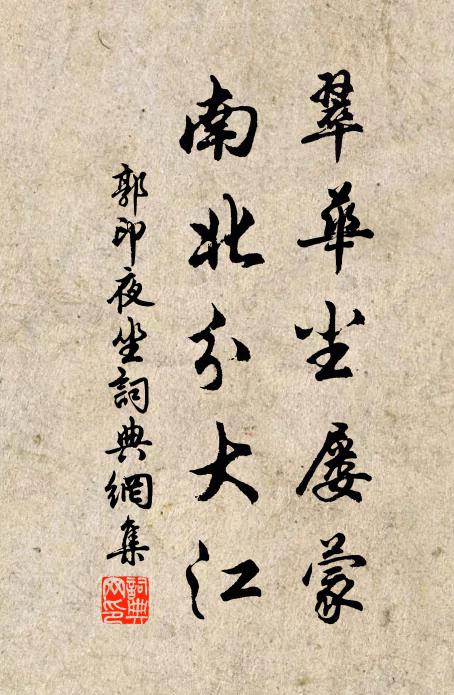 翠華尘屡蒙
南北分大江
郭印夜坐詞典網集
詞典网印